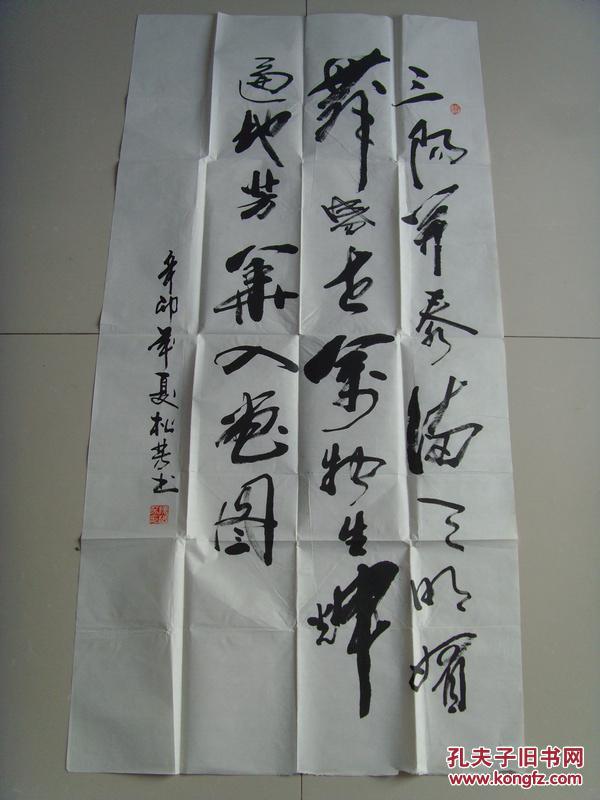 三陽开泰满天明媚
舞盛世萬物生輝
遍地芳華入画图
辛卯年夏松书
孔夫子旧书网
www.kongfz.com